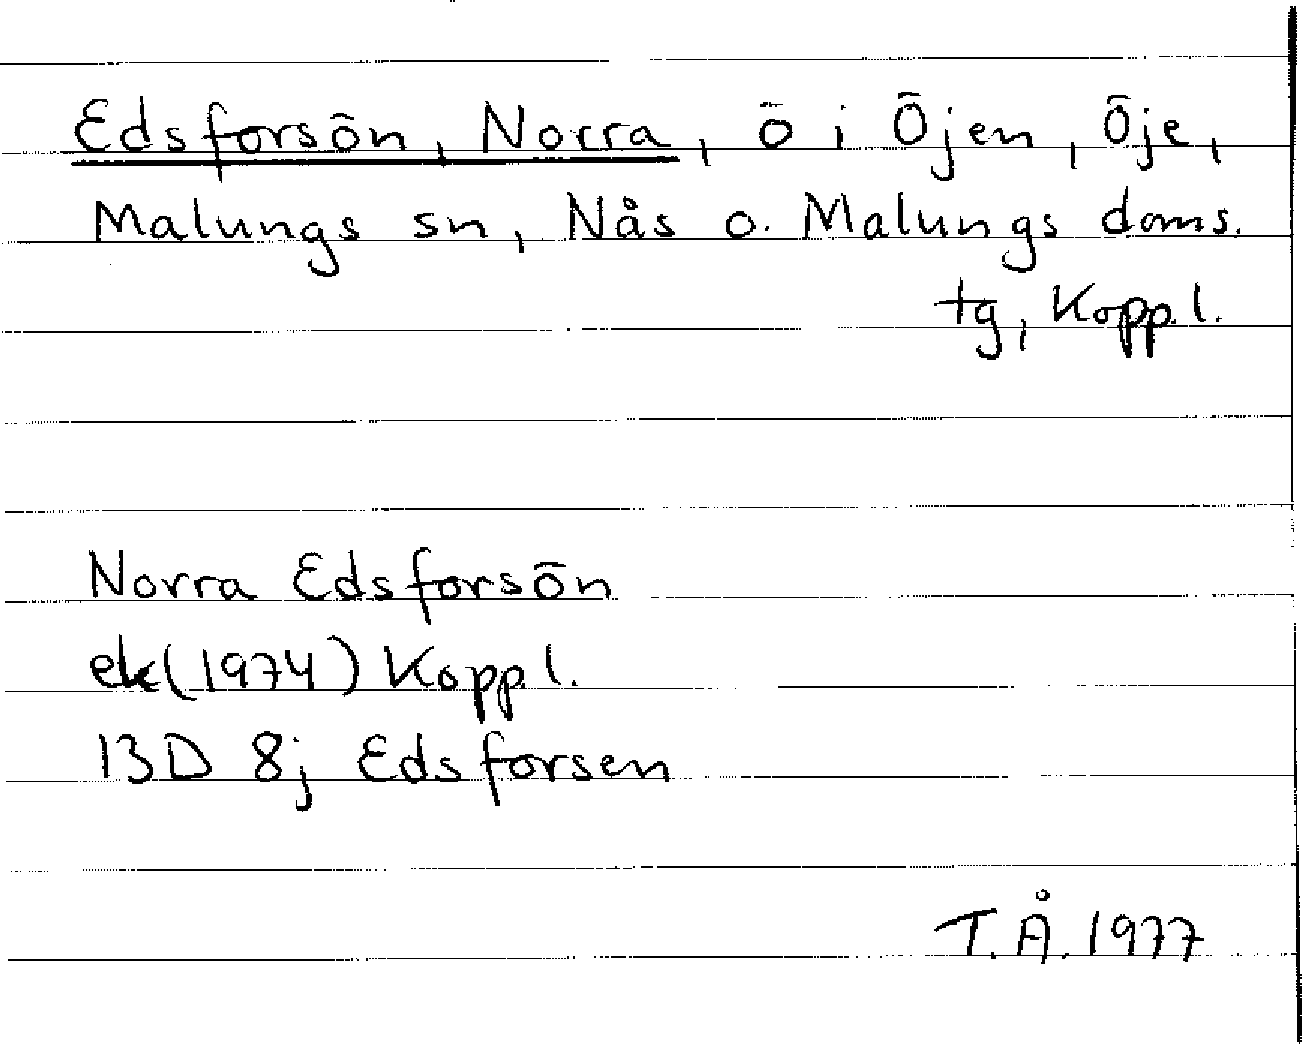 Edsforsön, Norra, ö i Öjen, Öje,
Malungs sn, Nås o. Malungs doms.
tg, Kopp.l.
Norra Edsforsön
ek(1974) Kopp.l.
13D 8j Edsforsen
T.Å. 1977